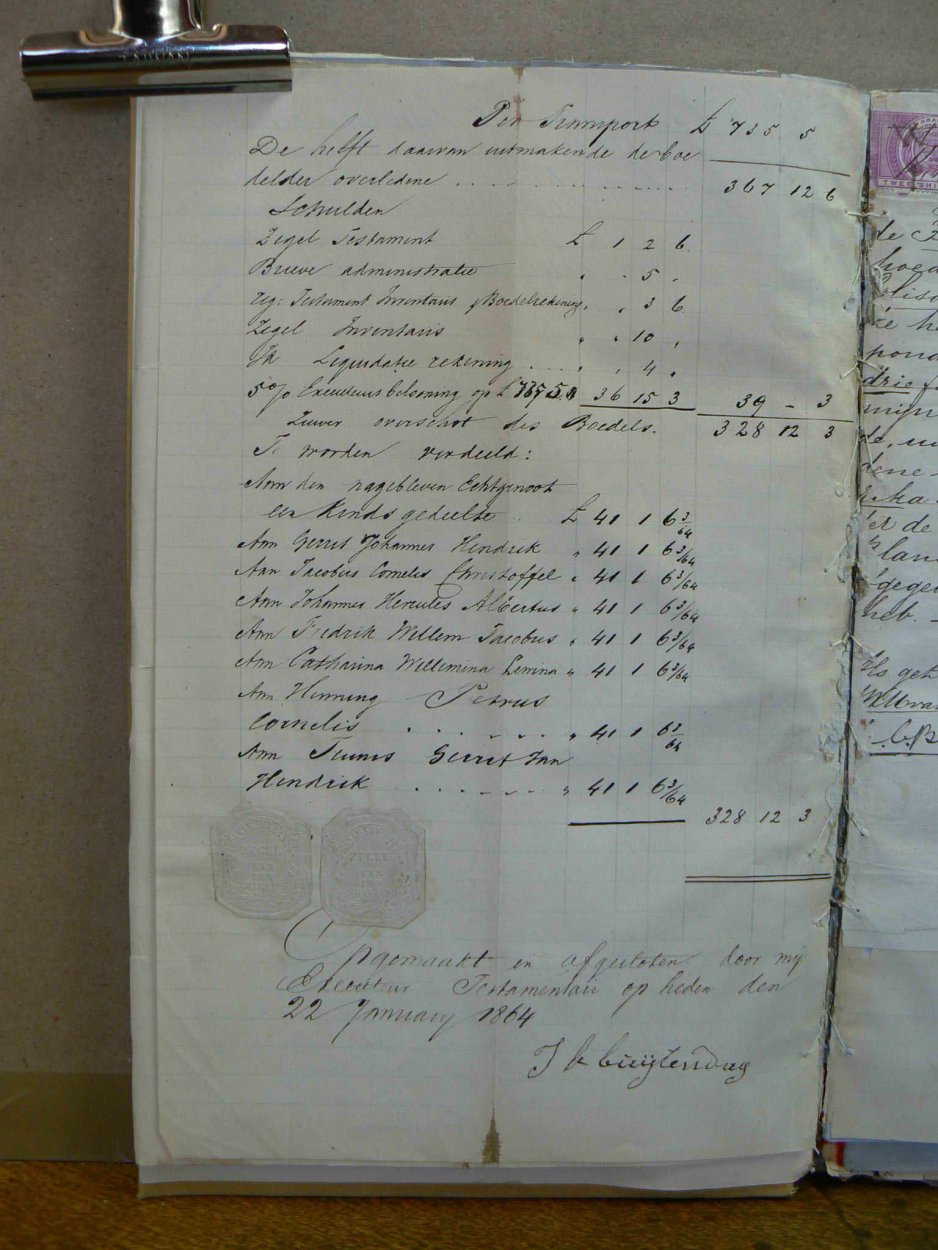 Per Transport £ 735 5
De helft daarvan uitmakende de boe
delder overledene 367 12 6
Schulden
Zegel Testament £ 1 2 6
Brieve administratie " " 5 "
reg: Testament Inventaris & Boedelrekening " " 3 6
Zegel Inventaris " " 10 "
Liquidatie rekening " " 4 "
5 % Executeurs belooning op £ 735 5 36 15 3 39 - 3
Zuiver overschot des Boedels. 328 12 3
Te worden verdeeld:
Aan den nagebleven Echtgenoot
een Kinds gedeelte £ 41 1 6 3/64
Aan Gerrit Johannes Hendrik " 41 1 6 3/64
Aan Jacobus Cornelis Christoffel " 41 1 6 3/64
Aan Johannes Hercules Albertus " 41 1 6 3/64
Aan Fredrik Willem Jacobus " 41 1 6 3/64
Aan Catharina Willemina Levina " 41 1 6 3/64
Aan Henning Petrus
Cornelis " 41 1 6 3/64
Aan Teunis Gerrit Jan
Hendrik " 41 1 6 3/64
328 12 3
ZEGEL
ZEGEL
Opgemaakt en afgesloten door mij
Executeur Testamentair op heden den
22 January 1864
Cuijlendag
TWEE SHI
de
hoed
ze h
pond
drie
mijn
dene
et de
lan
gegev
heb. -
Als get
C.B